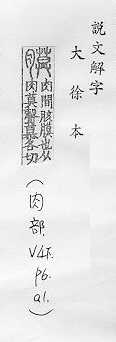 說文解字
大徐本
膜
肉間胲膜也从
肉莫聲慕各切
(肉部. V4下. P6. a1.)